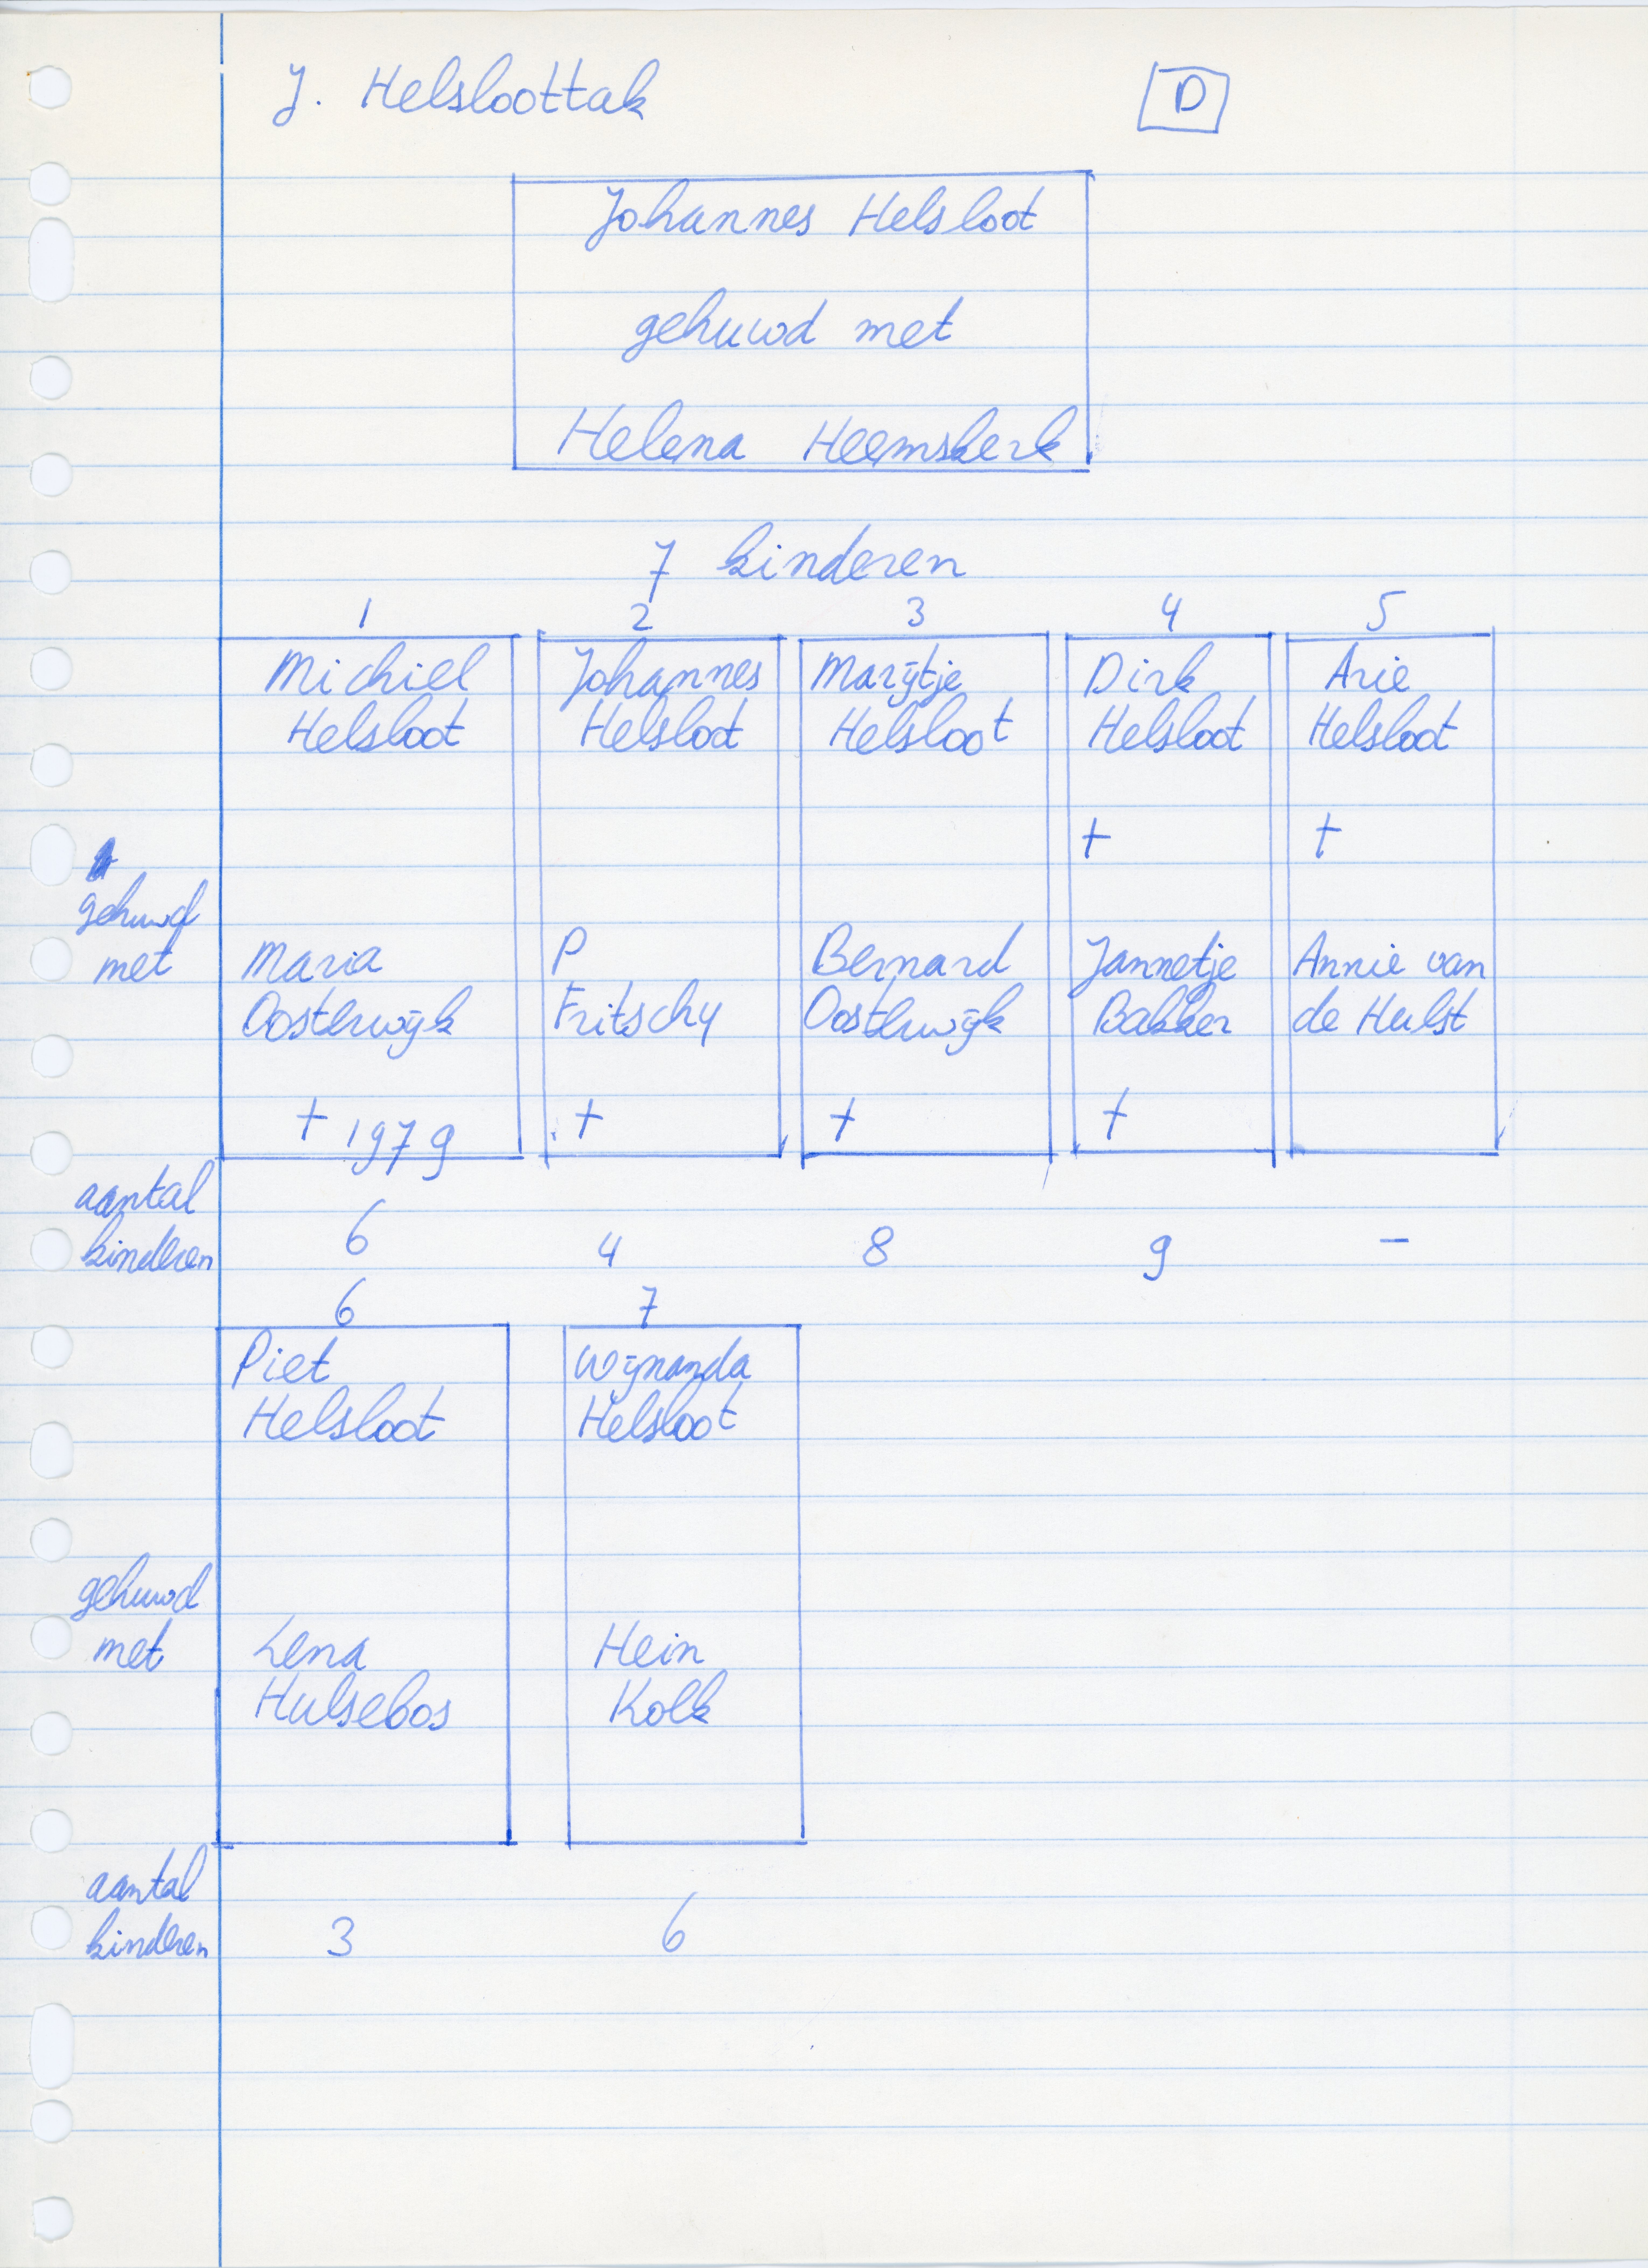 J. Helsloottak
D
Johannes Helsloot
gehuwd met
Helena Heemskerk
7 kinderen
1 2 3 4 5
Michiel Johannes Marijtje Dirk Arie
Helsloot Helsloot Helsloot Helsloot Helsloot
† †
gehuwd
met Maria P Bernard Jannetje Annie van
Oosterwijk Fritschy Oosterwijk Bakker de Hulst
† 1979 † † †
aantal
kinderen 6 4 8 9 -
6 7
Piet Wijnanda
Helsloot Helsloot
gehuwd
met Lena Hein
Hulsebos Kolk
aantal
kinderen 3 6